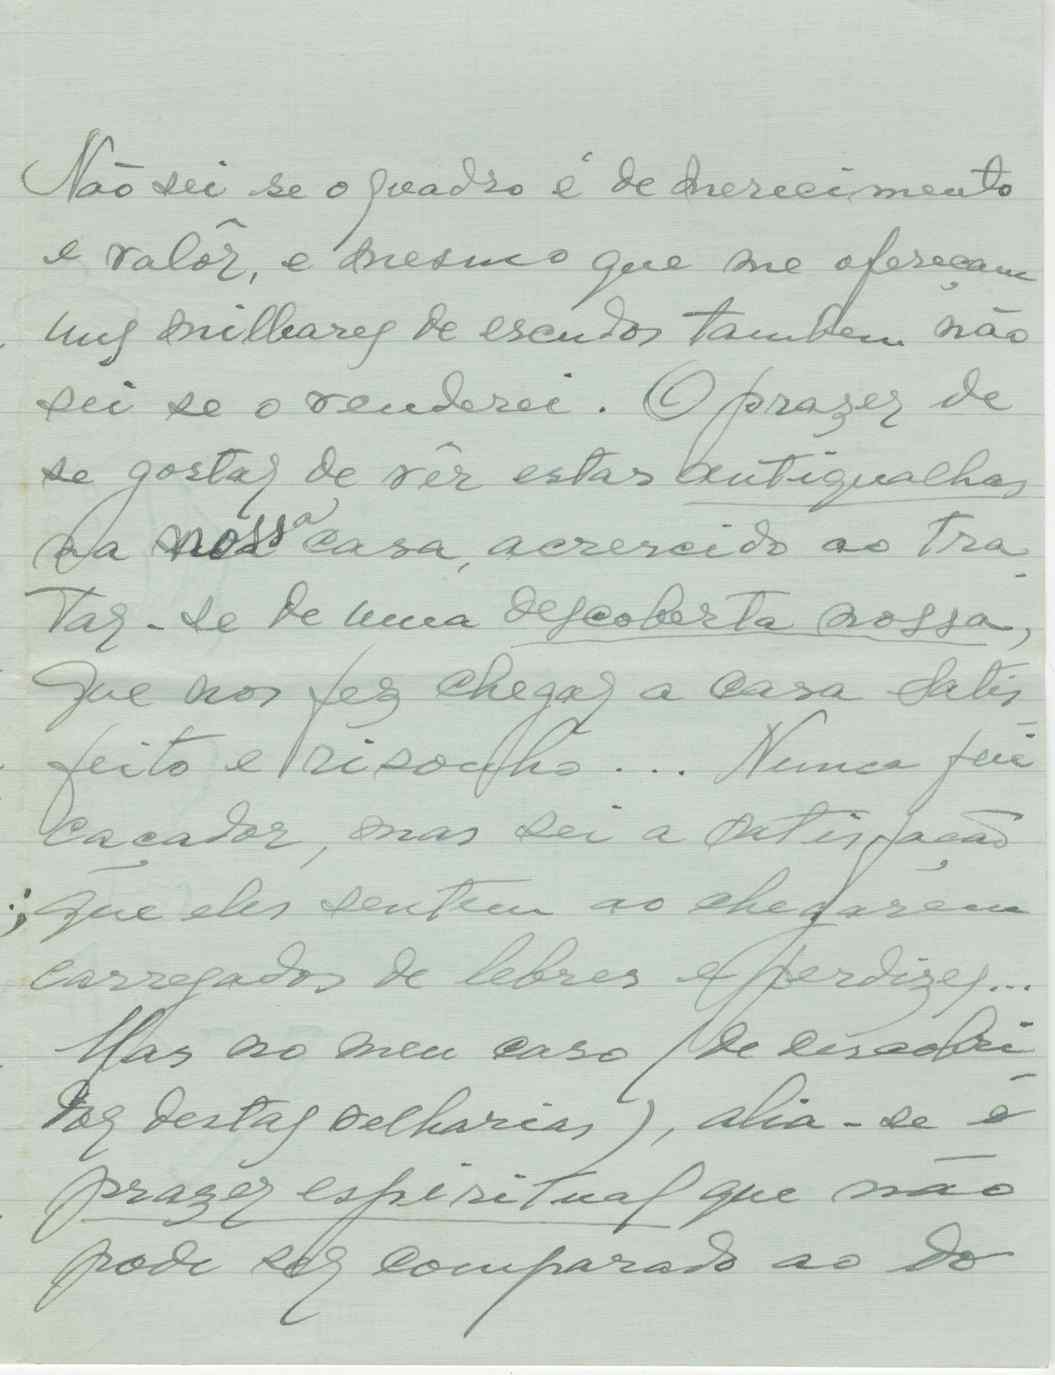 Não sei se o quadro é de merecimento
e valôr, e mesmo que me ofereçam
uns milhares de escudos tambem não
sei se o venderei. O prazer de
se gostar de vêr estas antigualhas
na nossa casa, acrescido ao tra-
tar-se de uma descoberta nossa,
que nos fez chegar a casa satis-
feito e risonho... Nunca fui
caçador, mas sei a satisfação
que eles sentem ao chegarem
carregados de lebres e perdizes...
Mas no meu caso (de descobri-
dor destas velharias), alia-se o
prazer espiritual que não
pode ser comparado ao do